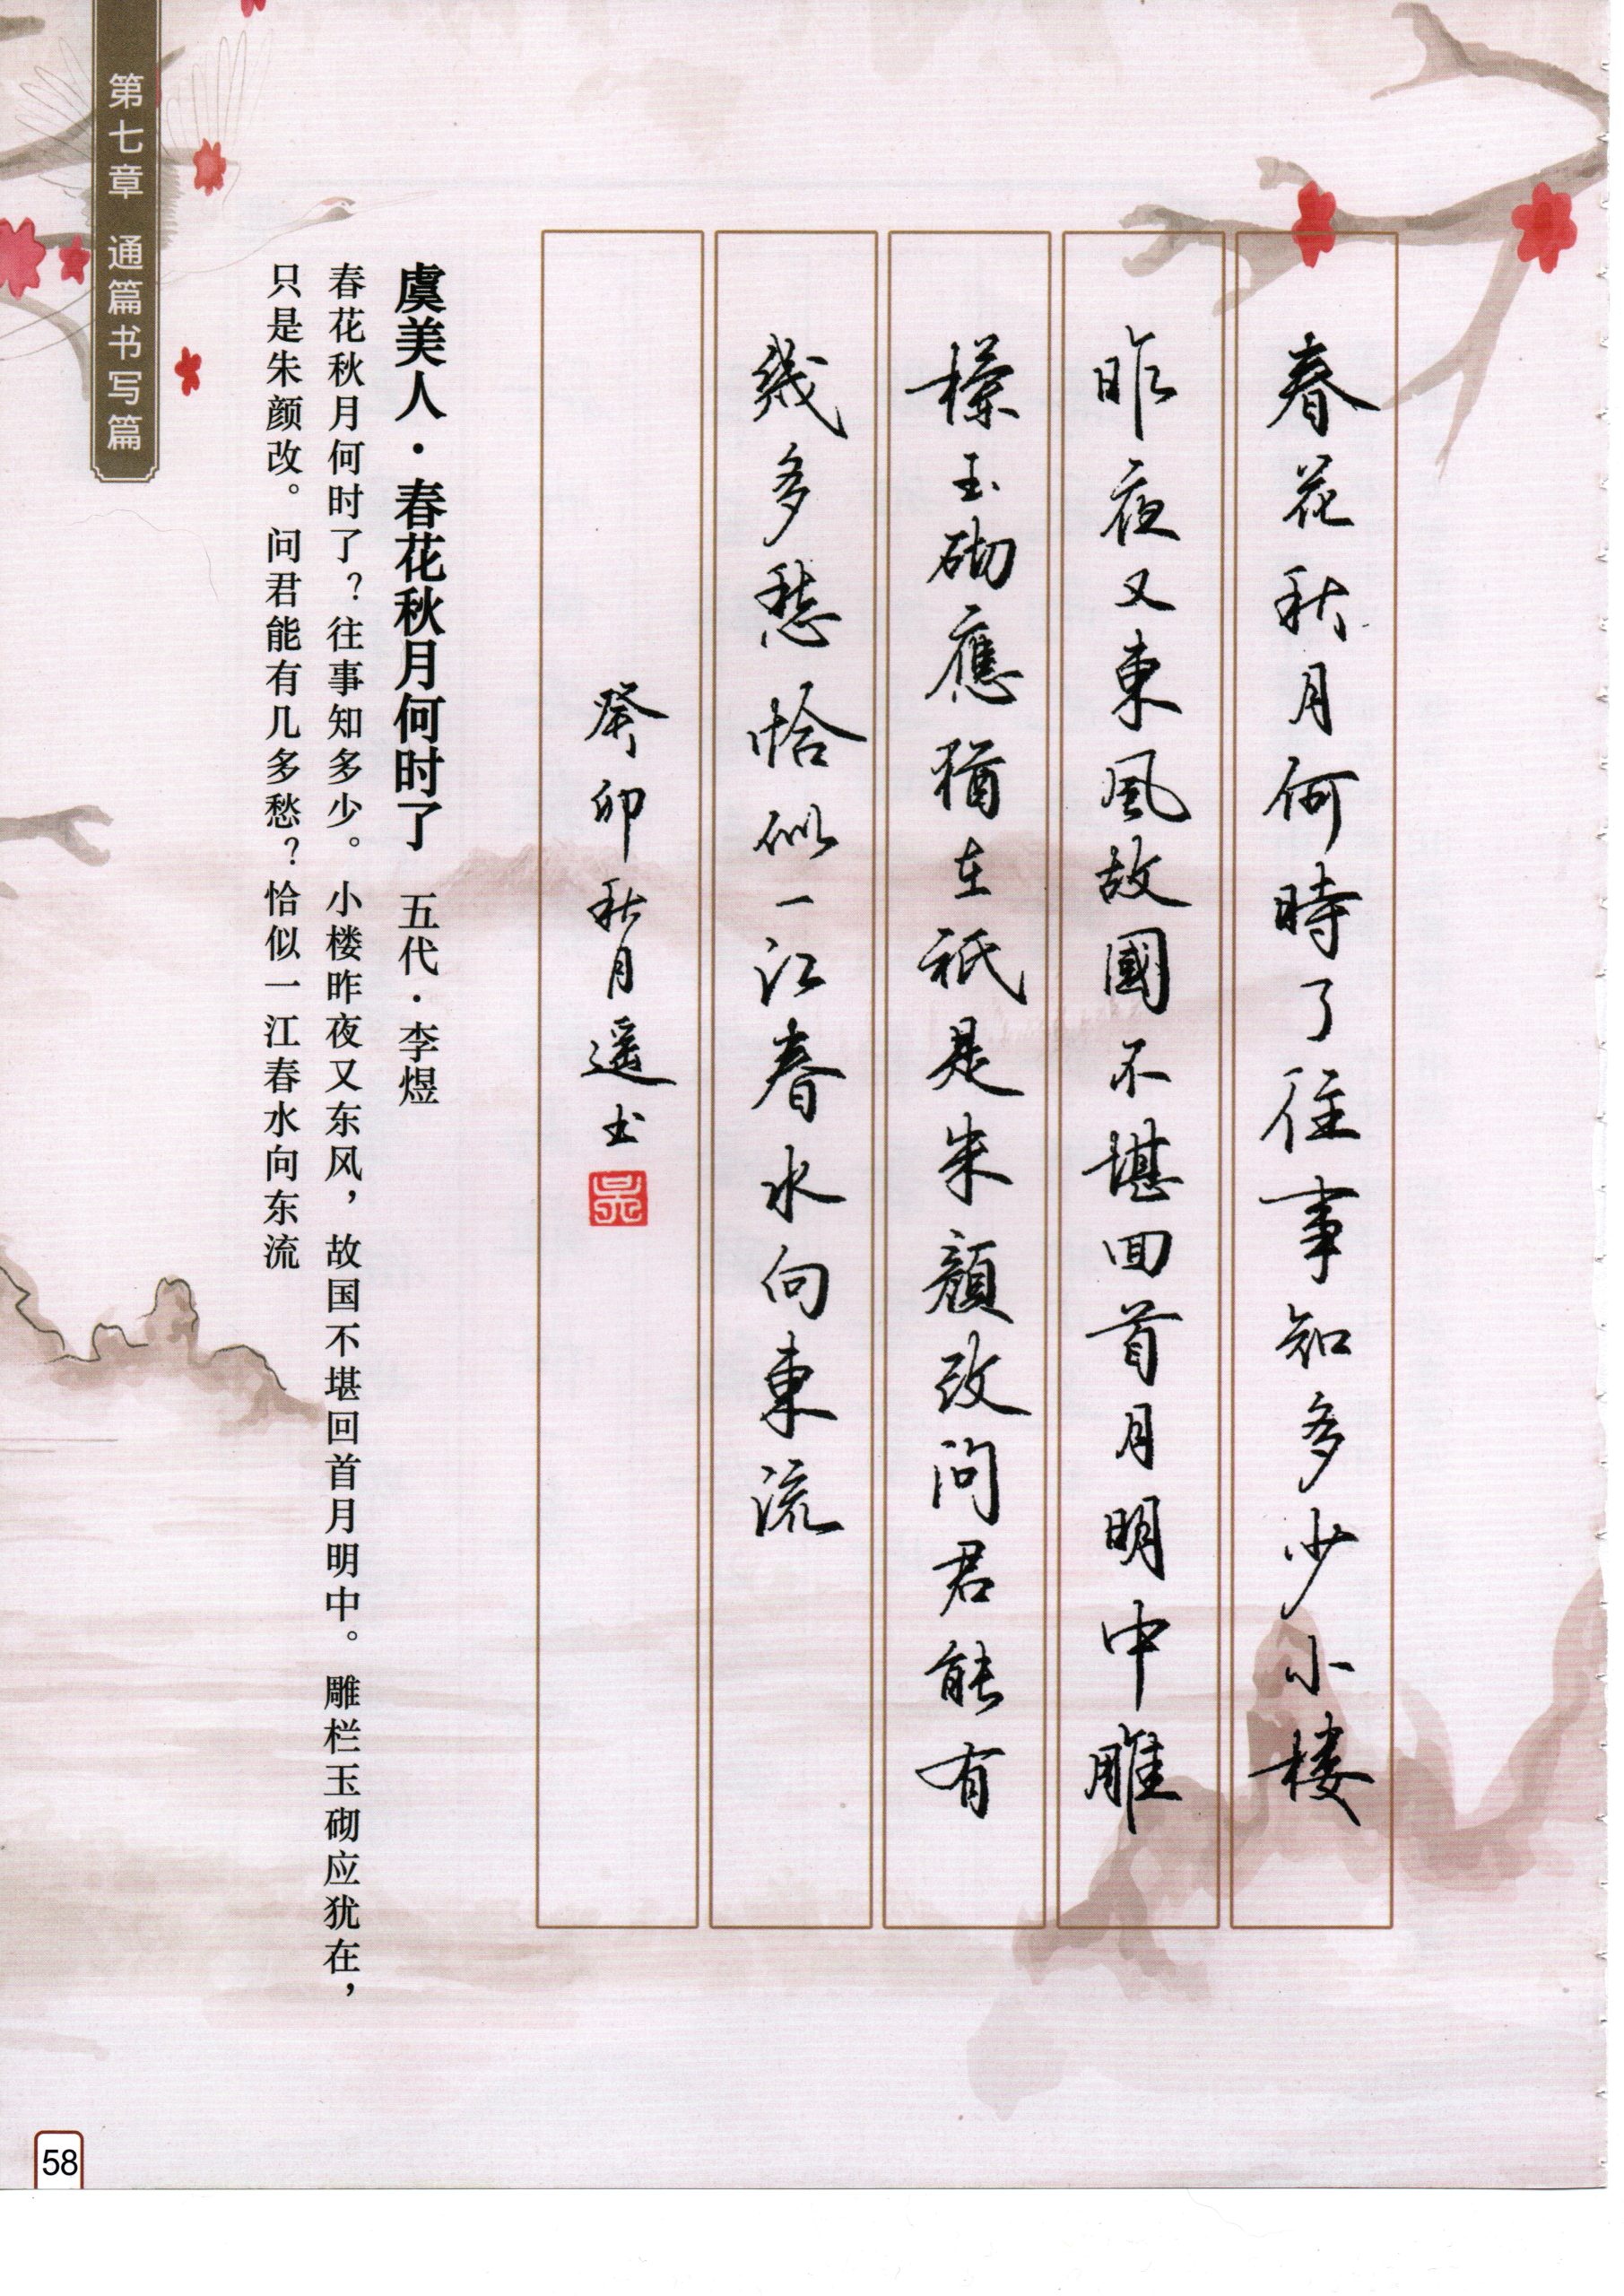 春花秋月何時了往事知多少小楼
昨夜又東風故國不堪回首月明中雕
欄玉砌應猶在祇是朱顏改問君能有
幾多愁恰似一江春水向東流
癸卯秋月遥书
虞美人·春花秋月何时了 五代·李煜
春花秋月何时了？往事知多少。小楼昨夜又东风，故国不堪回首月明中。雕栏玉砌应犹在，
只是朱颜改。问君能有几多愁？恰似一江春水向东流
第七章 通篇书写篇
58